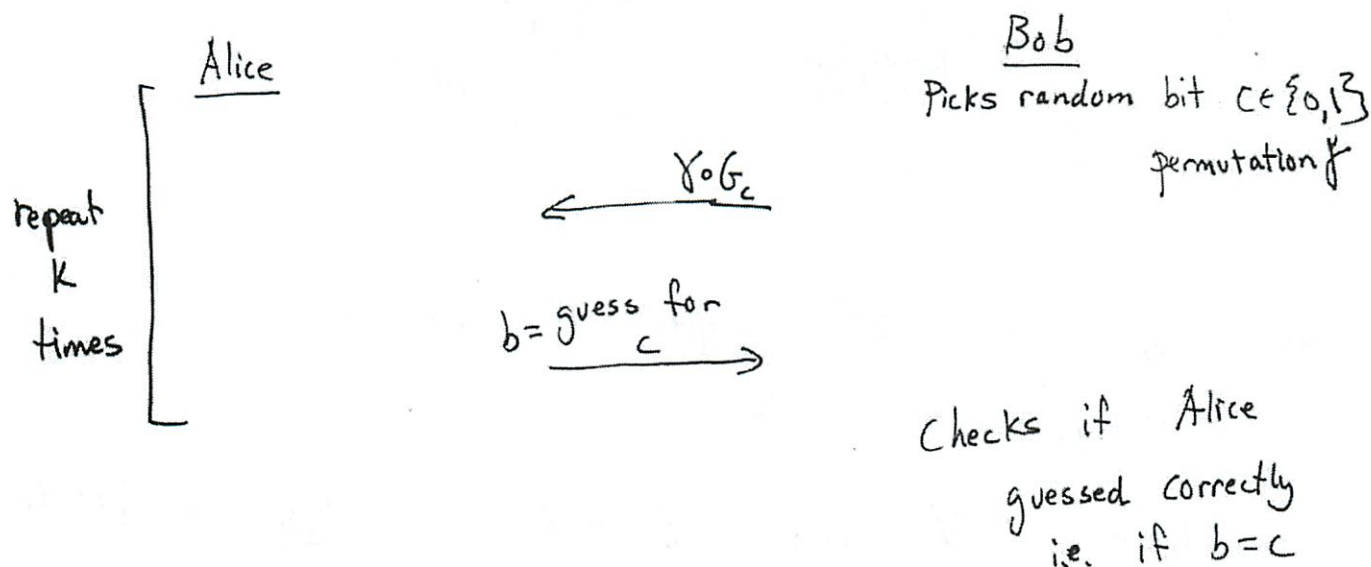 Alice
Bob
Picks random bit c∈{0,1}
permutation γ
γ∘G_c
repeat
K
times
b= guess for
c
Checks if Alice
guessed correctly
i.e. if b=c